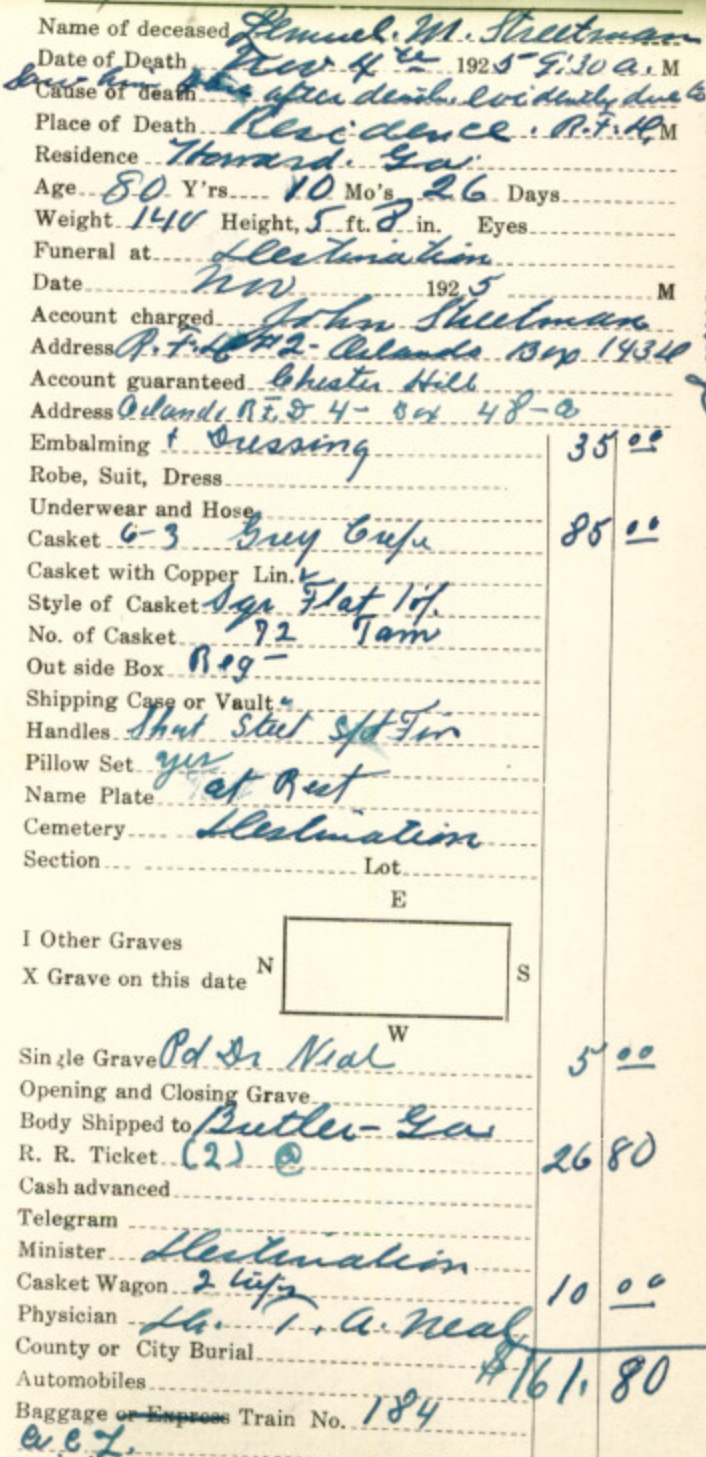 Name of deceased Lemuel. M. Streetman
Date of Death Nov 4th 1925 9:30 a. M
Saw him after death. evidently due to
Cause of death
Place of Death Residence. R.F.D, M
Residence Howard. Ga.
Age 80 Y'rs 10 Mo's 26 Days
Weight 140 Height, 5 ft. 8 in. Eyes
Funeral at Destination
Date Nov 1925 M
Account charged John Streetman
Address R.F.D #2- Orlando Box 143D
Account guaranteed Chester Hill
Address Orlando R.F.D 4- Box 48-
Embalming & Dressing 35 00
Robe, Suit, Dress
Underwear and Hose
Casket 6-3 Grey Crepe 85 00
Casket with Copper Lin.
Style of Casket Sqr Flat Top.
No. of Casket 72 Tam
Out side Box Reg-
Shipping Case or Vault "
Handles Short Steel
Pillow Set yes
Name Plate at Rest
Cemetery Destination
Section Lot
E
I Other Graves
X Grave on this date N S
W
Single Grave Pd Dr Neal 5 00
Opening and Closing Grave
Body Shipped to Butler- Ga
R. R. Ticket (2) @ 26 80
Cash advanced
Telegram
Minister Destination
Casket Wagon 2 trips 10 00
Physician Dr. T. A. Neal
County or City Burial
$161.80
Automobiles
Baggage or Express Train No. 184
A C L.